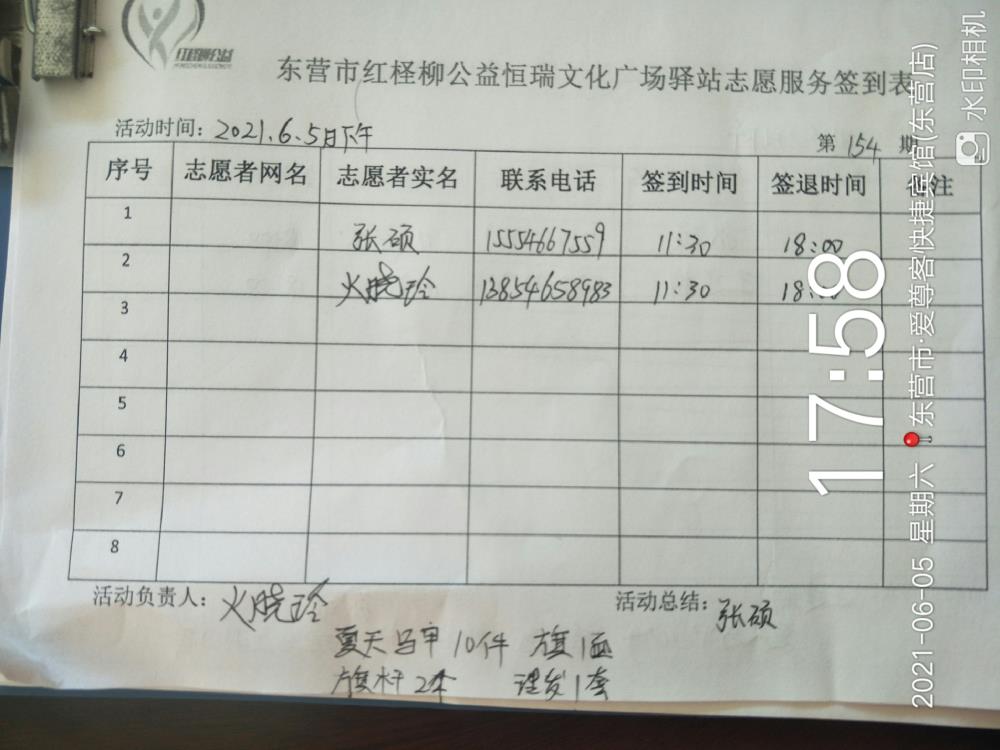 红柽柳公益
东营市红柽柳公益恒瑞文化广场驿站志愿服务签到表
活动时间：2021.6.5日下午
第 154 期
序号 志愿者网名 志愿者实名 联系电话 签到时间 签退时间 备注
1 张硕 15554667559 11:30 18:00
2 火晓玲 13854658983 11:30 18:00
3
4
5
6
7
8
活动负责人：火晓玲 活动总结：张硕
夏天马甲10件 旗1面
旗杆2本 理发1套
17:58
2021-06-05 星期六 东营市·爱尊客快捷宾馆(东营店)
水印相机